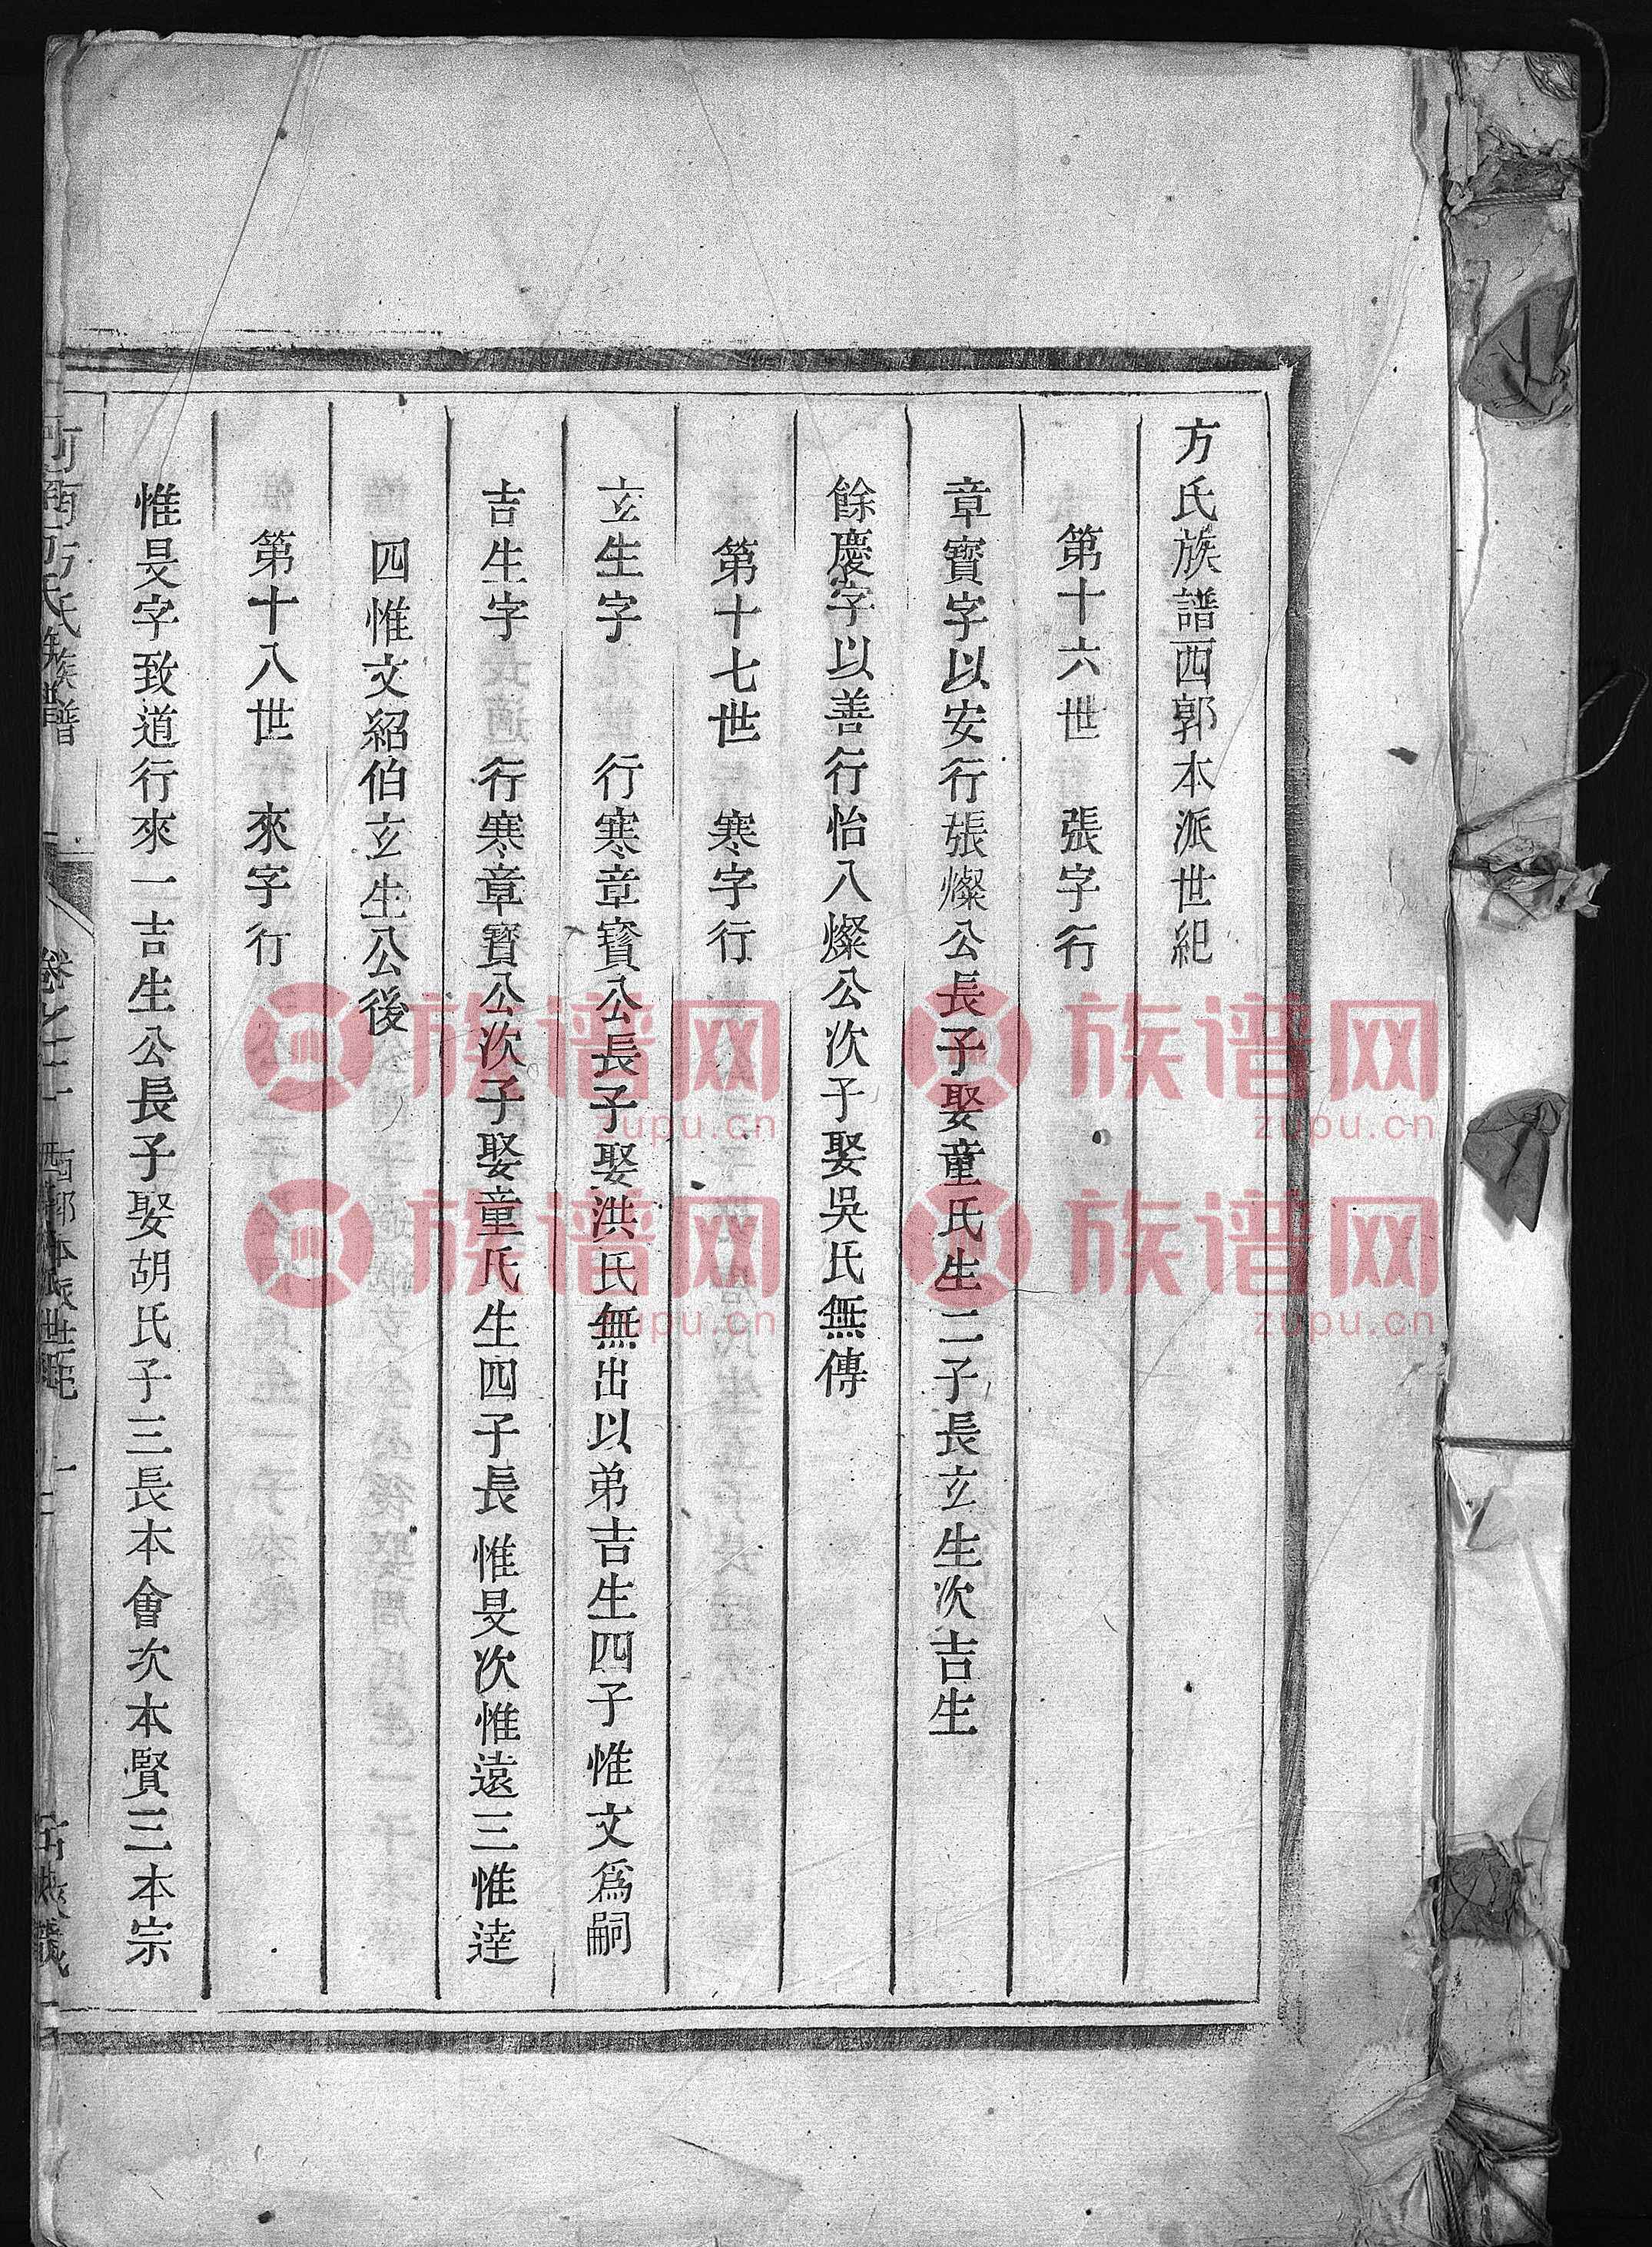 方氏族譜西郭本派世紀
第十六世　張字行
章寶字以安行張燦公長子娶童氏生二子長玄生次吉生
餘慶字以善行怡八燦公次子娶吳氏無傳
第十七世　寒字行
玄生字　　行寒章寶公長子娶洪氏無出以弟吉生四子惟文爲嗣
吉生字　　行寒章寶公次子娶童氏生四子長惟旻次惟遠三惟達
四惟文紹伯玄生公後
第十八世　來字行
惟旻字致道行來一吉生公長子娶胡氏子三長本會次本賢三本宗
族谱网
zupu.cn
族谱网
zupu.cn
族谱网
zupu.cn
族谱网
zupu.cn